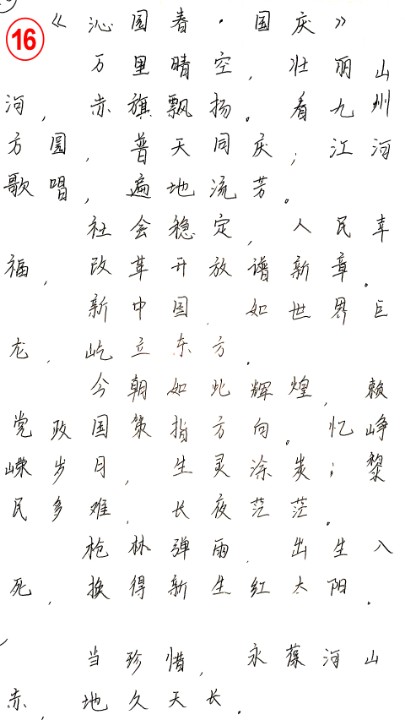 16
《沁园春·国庆》
万里晴空，壮丽山
河，赤旗飘扬。看九州
方圆，普天同庆；江河
歌唱，遍地流芳。
社会稳定，人民幸
福，改革开放谱新章。
新中国，如世界巨
龙，屹立东方。
今朝如此辉煌，赖
党政国策指方向。忆峥
嵘岁月，生灵涂炭；黎
民多难，长夜茫茫。
枪林弹雨，出生入
死，换得新生红太阳。
当珍惜，永葆河山
赤，地久天长。